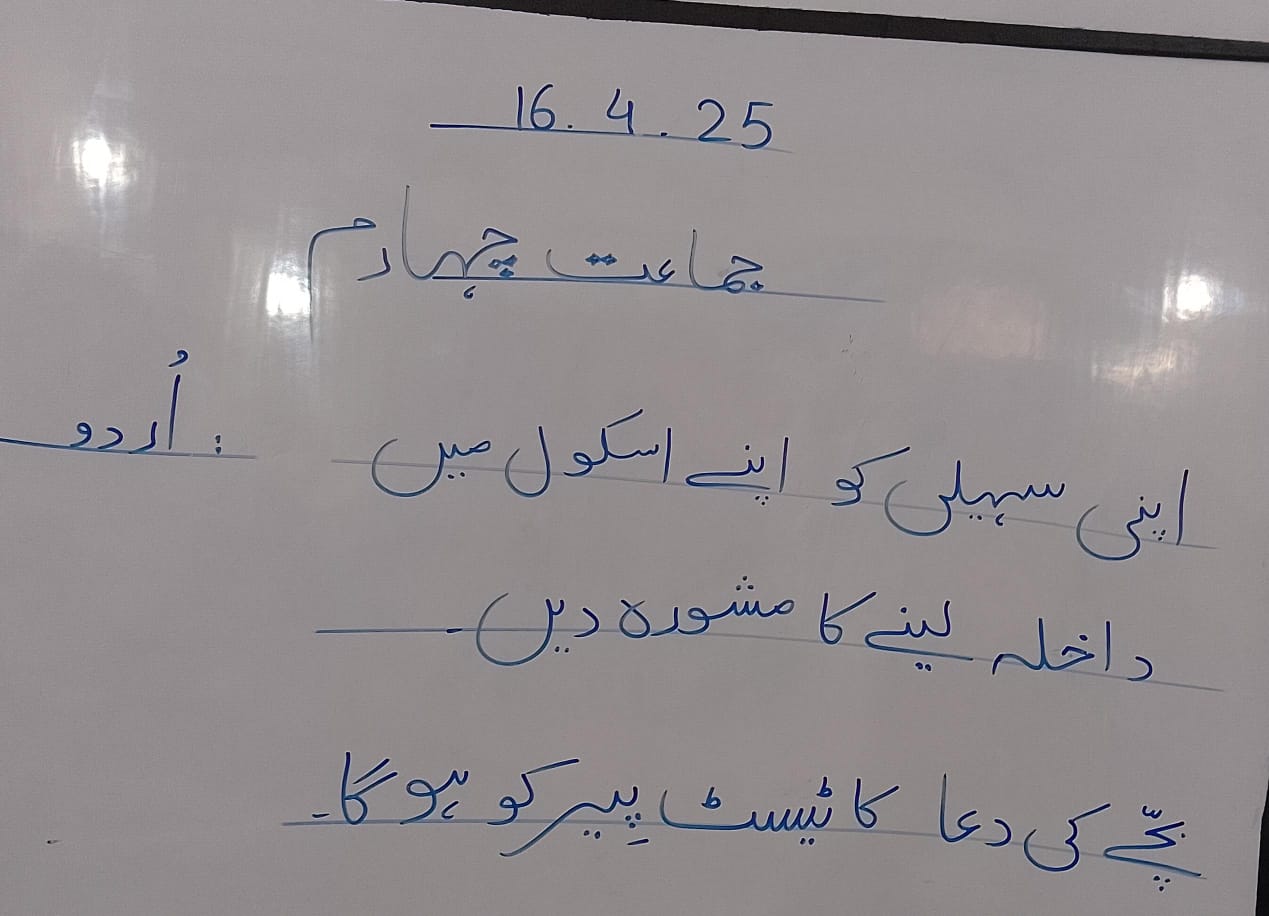 16.4.25
جماعت چہارم
اُردو :
اپنی سہیلی کو اپنے اسکول میں
داخلہ لینے کا مشورہ دیں۔
بچّے کی دعا کا ٹیسٹ پِیر کو ہو گا۔